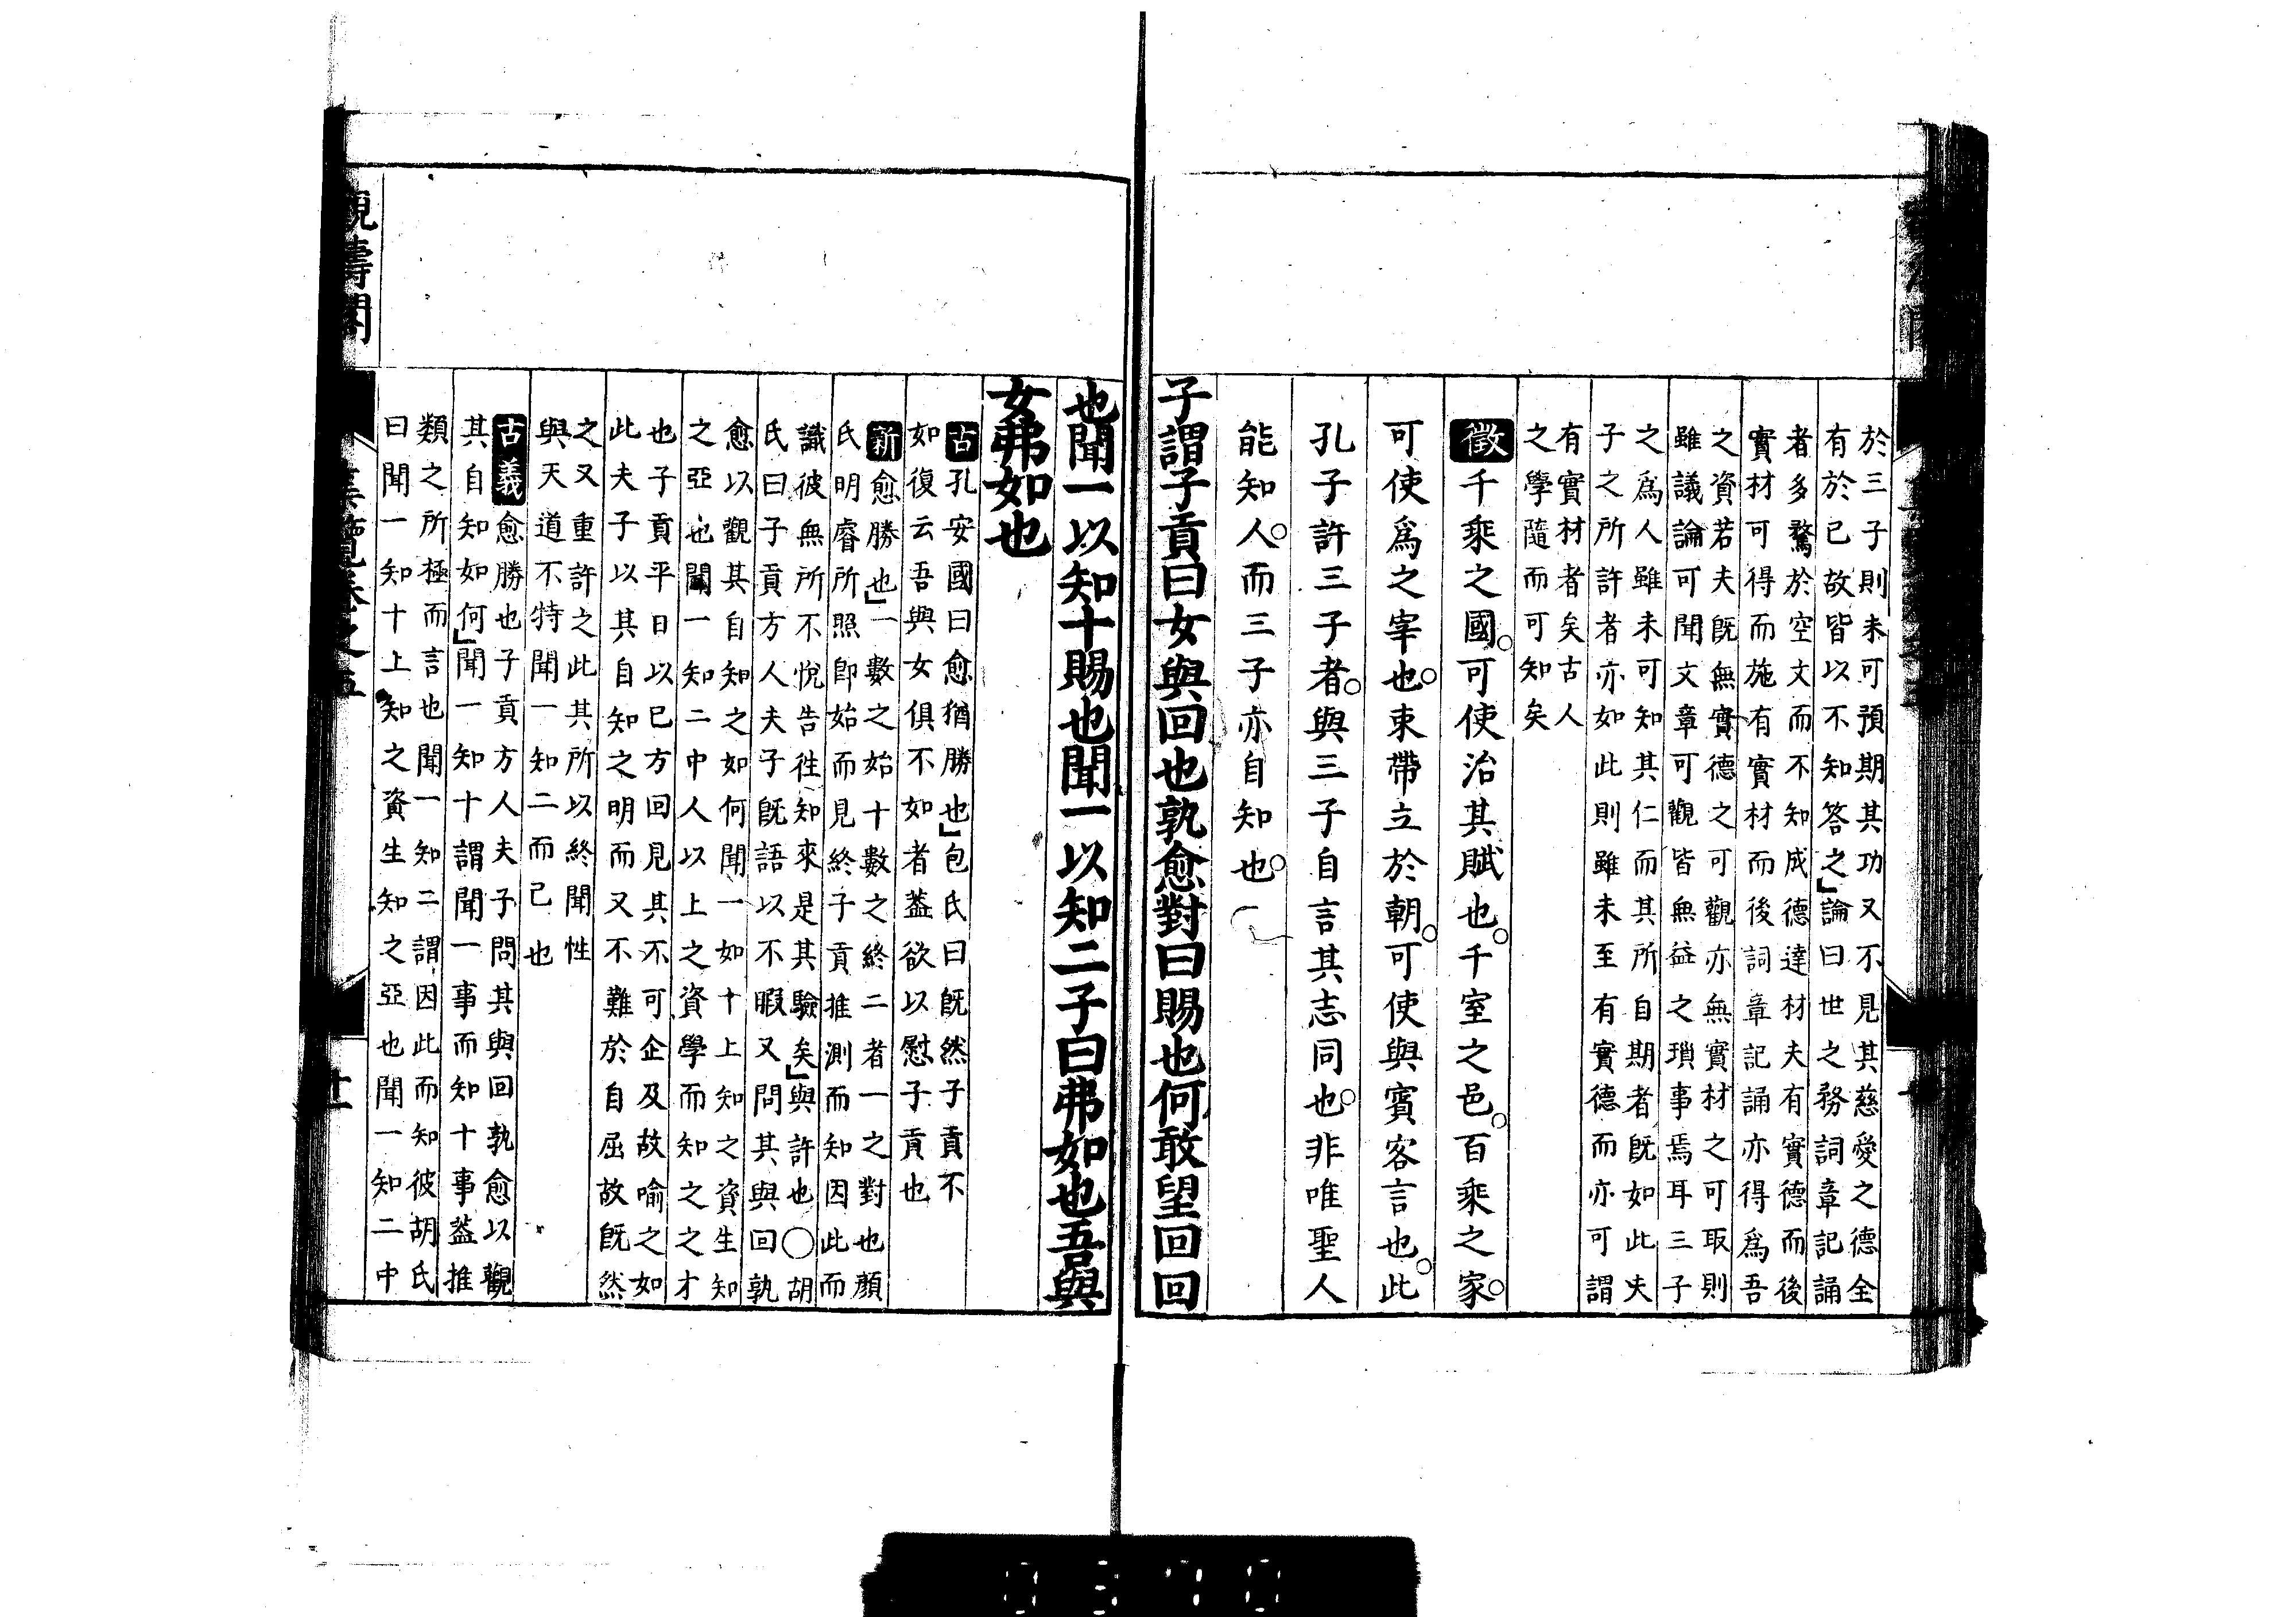 於三子則未可預期其功又不見其慈愛之德全
有於已故皆以不知答之」論曰世之務詞章記誦
者多騖於空文而不知成德達材夫有實德而後
實材可得而施有實材而後詞章記誦亦得爲吾
之資若夫既無實德之可觀亦無實材之可取則
雖議論可聞文章可觀皆無益之瑣事焉耳三子
之爲人雖未可知其仁而其所自期者既如此夫
子之所許者亦如此則雖未至有實德而亦可謂
有實材者矣古人
之學隨而可知矣
徵千乘之國可使治其賦也千室之邑百乘之家
可使爲之宰也束帶立於朝可使與賓客言也此
孔子許三子者與三子自言其志同也非唯聖人
能知人而三子亦自知也
子謂子貢曰女與回也孰愈對曰賜也何敢望回回
也聞一以知十賜也聞一以知二子曰弗如也吾與
女弗如也
古孔安國曰愈猶勝也」包氏曰既然子貢不
如復云吾與女俱不如者葢欲以慰子貢也
新愈勝也」一數之始十數之終二者一之對也顏
氏明睿所照即始而見終子貢推測而知因此而
識彼無所不悅告徃知來是其驗矣」與許也〇胡
氏曰子貢方人夫子既語以不暇又問其與回孰
愈以觀其自知之如何聞一如十上知之資生知
之亞也聞一知二中人以上之資學而知之之才
也子貢平日以已方回見其不可企及故喻之如
此夫子以其自知之明而又不難於自屈故既然
之又重許之此其所以終聞性
與天道不特聞一知二而已也
古義愈勝也子貢方人夫子問其與回孰愈以觀
其自知如何」聞一知十謂聞一事而知十事葢推
類之所極而言也聞一知二謂因此而知彼胡氏
曰聞一知十上知之資生知之亞也聞一知二中
觀濤閣
集覽卷之五
0370